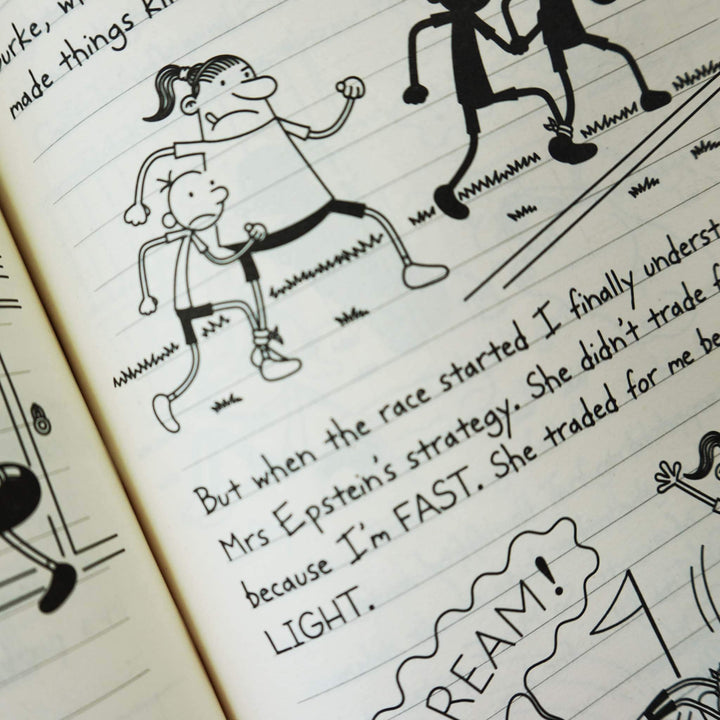 made things
But when the race started I finally underst
Mrs Epstein's strategy. She didn't trade f
because I'm FAST. She traded for me be
LIGHT.
REAM!